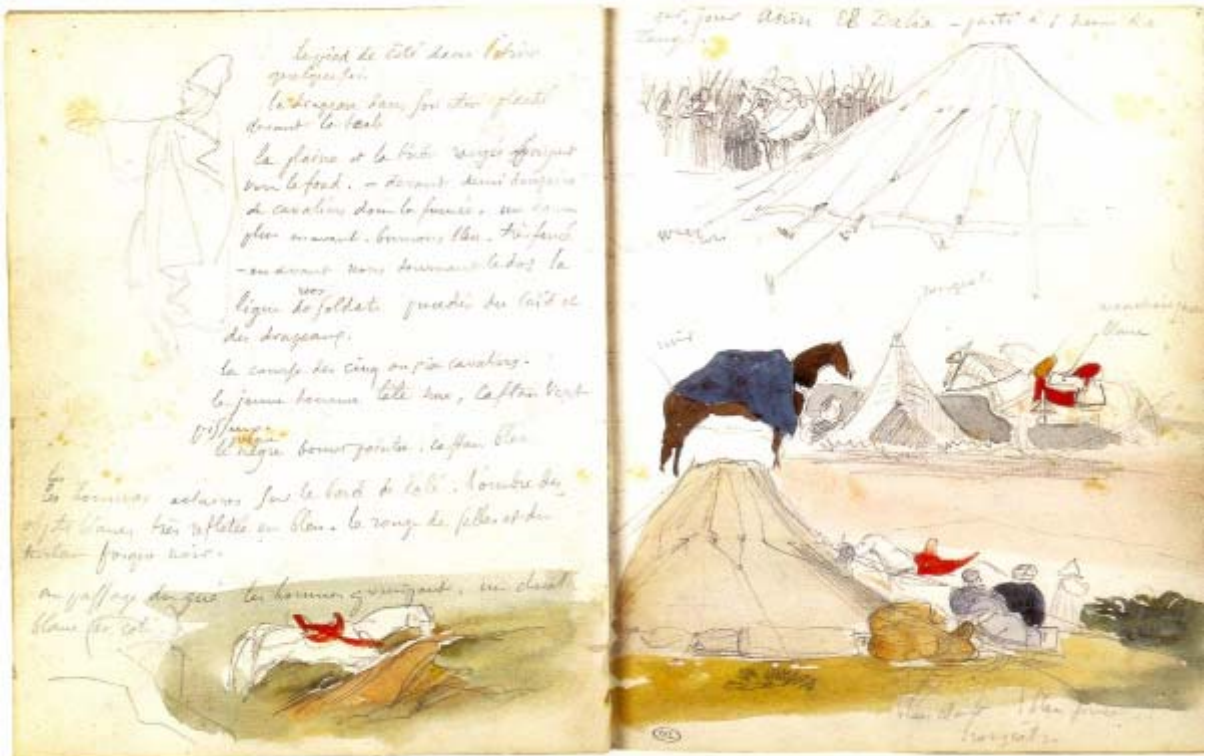 le pied de côté dans l'étrier
quelquefois
le drapeau dans son étui planté
devant la tente
la plaine et la tribu rangée presque
vers le fond. - devant demi douzaine
de cavaliers dans la fumée. un homme
plus en avant. burnous bleu. très foncé
- en avant nous tournant le dos la
ligne de nos soldats précédés du caïd et
des drapeaux.
la course des cinq ou six cavaliers.
le jeune homme tête nue, caftan vert
pisseux
le nègre bonnet pointu. caftan bleu
les hommes éclairés sur le bord de côté. l'ombre des
objets blancs très reflétée en bleu. le rouge des selles et du
turban presque noir.
au passage du gué les hommes grimpant. un cheval
blanc de côté
jour Aïn El Dalia - parti à 1 heure de
Tanger.
rouges
noir
blanc
bleu